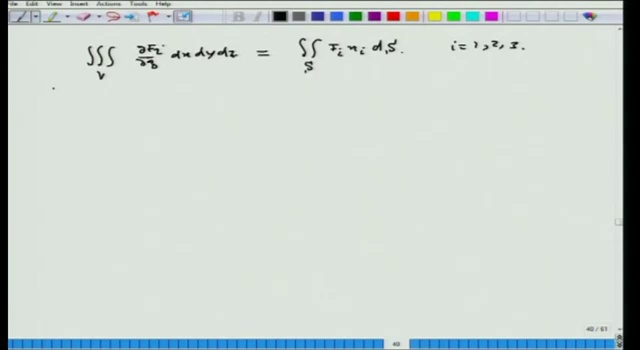 Edit View Insert Actions Tools Help
∭_V ∂F_i/∂x_i dx dy dz = ∬_S F_i n_i dS. i = 1, 2, 3.
B I
40 / 61
40